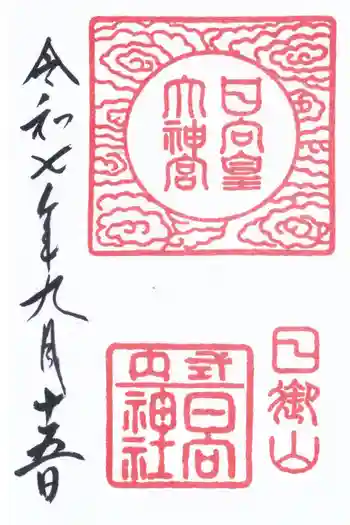 日向皇
大神宮
式内
日向
神社
日御山
令和七年九月十五日